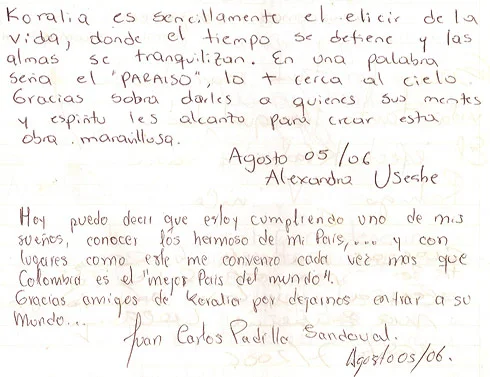 Koralia es sencillamente el elicir de la
vida, donde el tiempo se detiene y las
almas se tranquilizan. En una palabra
seria el "PARAISO", lo + cerca al cielo.
Gracias sobra darles a quienes sus mentes
y espiritu les alcanto para crear esta
obra maravillosa.
Agosto 05/06
Alexandra Useche
Hoy puedo decir que estoy cumpliendo uno de mis
sueños, conocer los hermoso de mi Pais,... y con
lugares como este me convenzo cada vez mas que
Colombia es el "mejor Pais del mundo".
Gracias amigos de Koralia por dejarnos entrar a su
Mundo...
Juan Carlos Padilla Sandoval.
Agosto 05/06.